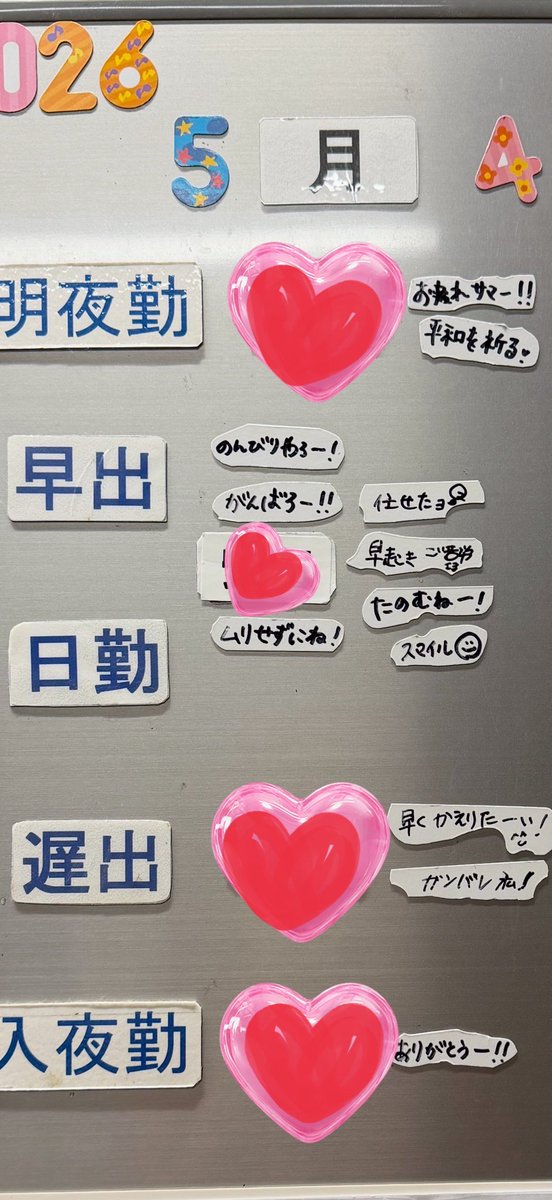 026
5 月 4
明夜勤
お疲れサマー!!
平和を祈る♥
のんびりやろー!
早出
がんばろー!!
仕せたヨ
早起き ご苦労さま
たのむねー!
ムリせずにね!
スマイル
日勤
早くかえりたーい!
遅出
ガンバレ 私!
入夜勤
ありがとうー!!